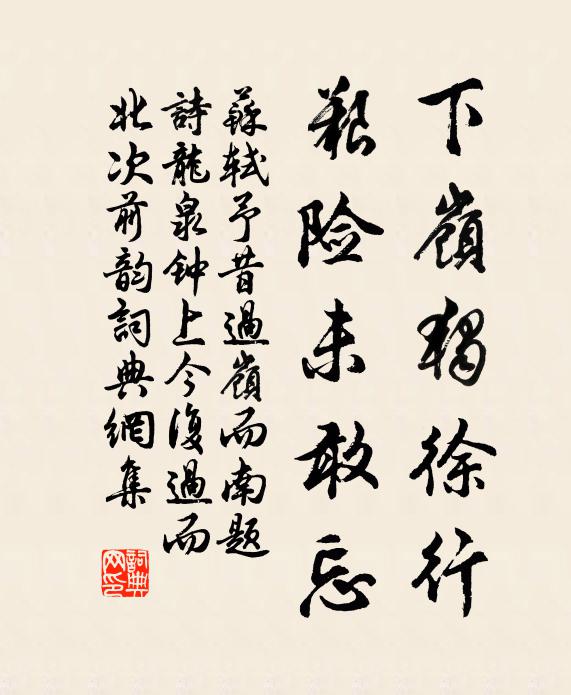 下嶺獨徐行
艱險未敢忘
蘇軾予昔過嶺而南題
詩龍泉钟上今復過而
北次前韵詞典網集
詞典
网印